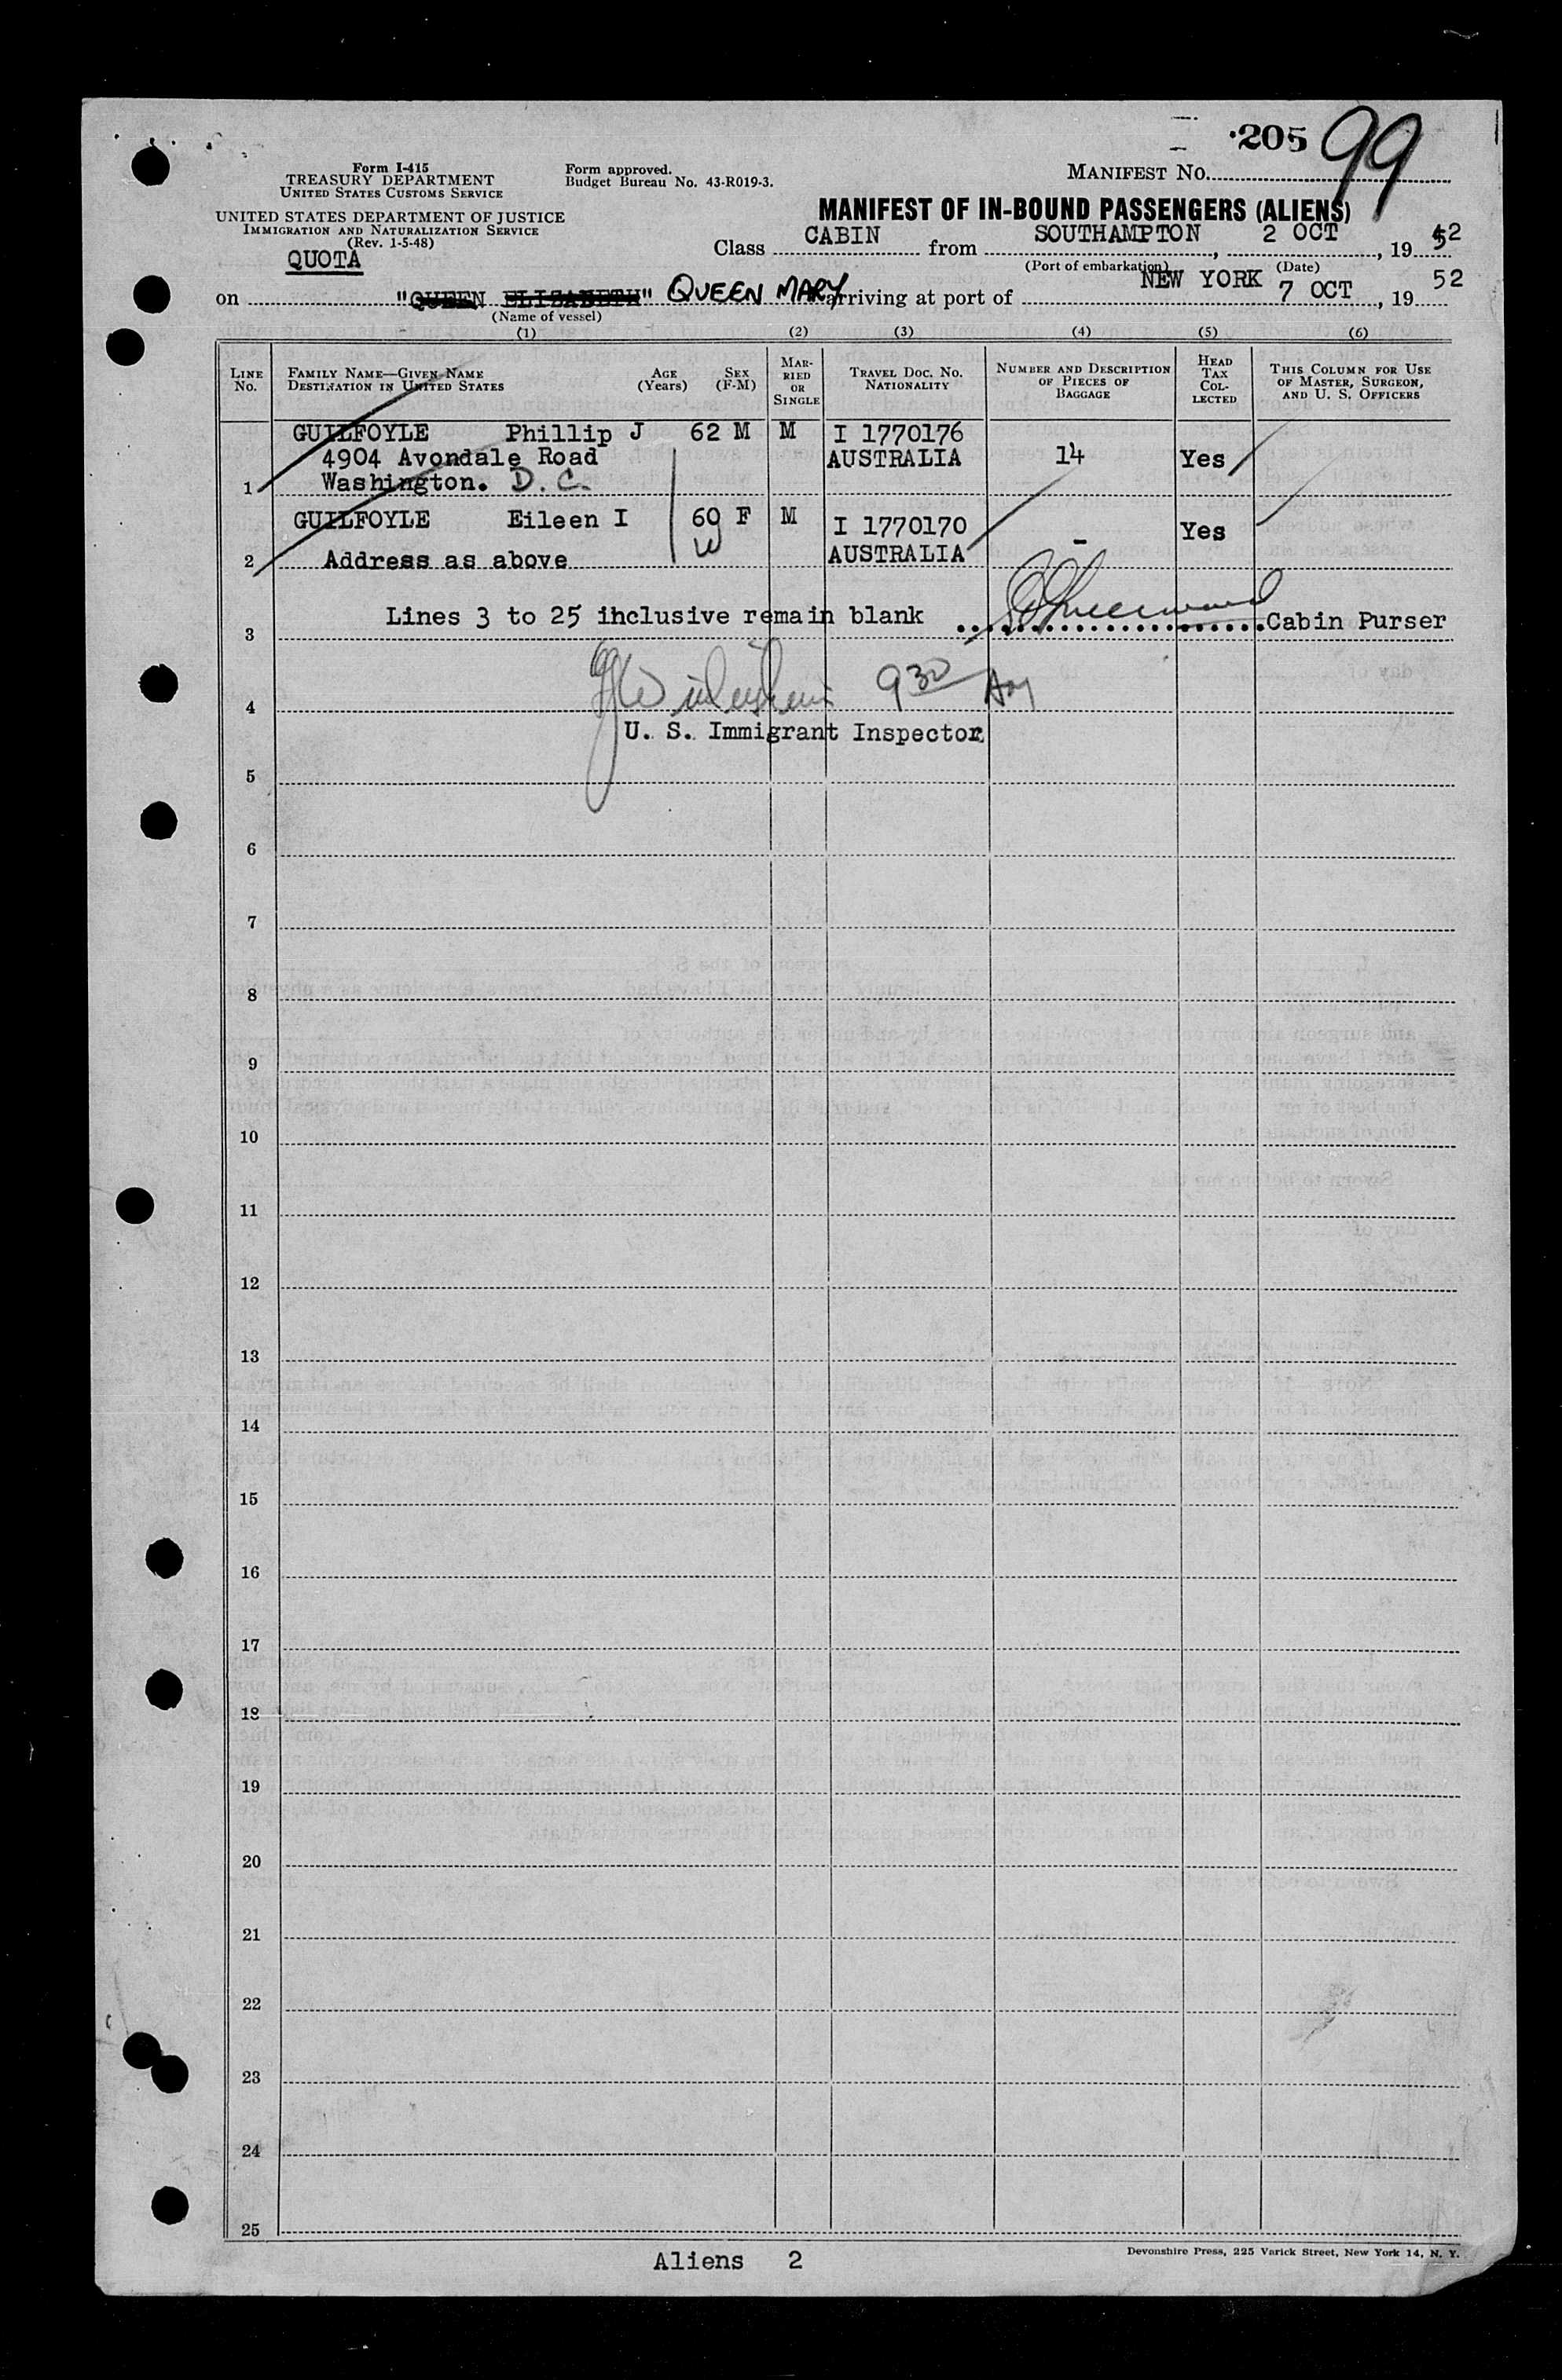 ·205 99
Form I-415
TREASURY DEPARTMENT
UNITED STATES CUSTOMS SERVICE
Form approved.
Budget Bureau No. 43-R019-3.
MANIFEST NO.
UNITED STATES DEPARTMENT OF JUSTICE
IMMIGRATION AND NATURALIZATION SERVICE
(Rev. 1-5-48)
QUOTA
MANIFEST OF IN-BOUND PASSENGERS (ALIENS)
Class CABIN from SOUTHAMPTON, 2 OCT, 1952
(Port of embarkation) (Date)
on "QUEEN ELIZABETH" QUEEN MARY arriving at port of NEW YORK 7 OCT, 1952
(Name of vessel)
(1) (2) (3) (4) (5) (6)
LINE NO. FAMILY NAME—GIVEN NAME DESTINATION IN UNITED STATES AGE (Years) SEX (F-M) MARRIED OR SINGLE TRAVEL DOC. NO. NATIONALITY NUMBER AND DESCRIPTION OF PIECES OF BAGGAGE HEAD TAX COLLECTED THIS COLUMN FOR USE OF MASTER, SURGEON, AND U. S. OFFICERS
GUILFOYLE Phillip J 62 M M I 1770176
4904 Avondale Road AUSTRALIA 14 Yes
1 Washington. D.C.
GUILFOYLE Eileen I 60 F M I 1770170 Yes
W
2 Address as above AUSTRALIA -
Lines 3 to 25 ihclusive remain blank Cabin Purser
3
9 30 Am
4
U. S. Immigrant Inspector
5
6
7
8
9
10
11
12
13
14
15
16
17
18
19
20
21
22
23
24
25
Aliens 2
Devonshire Press, 225 Varick Street, New York 14, N. Y.